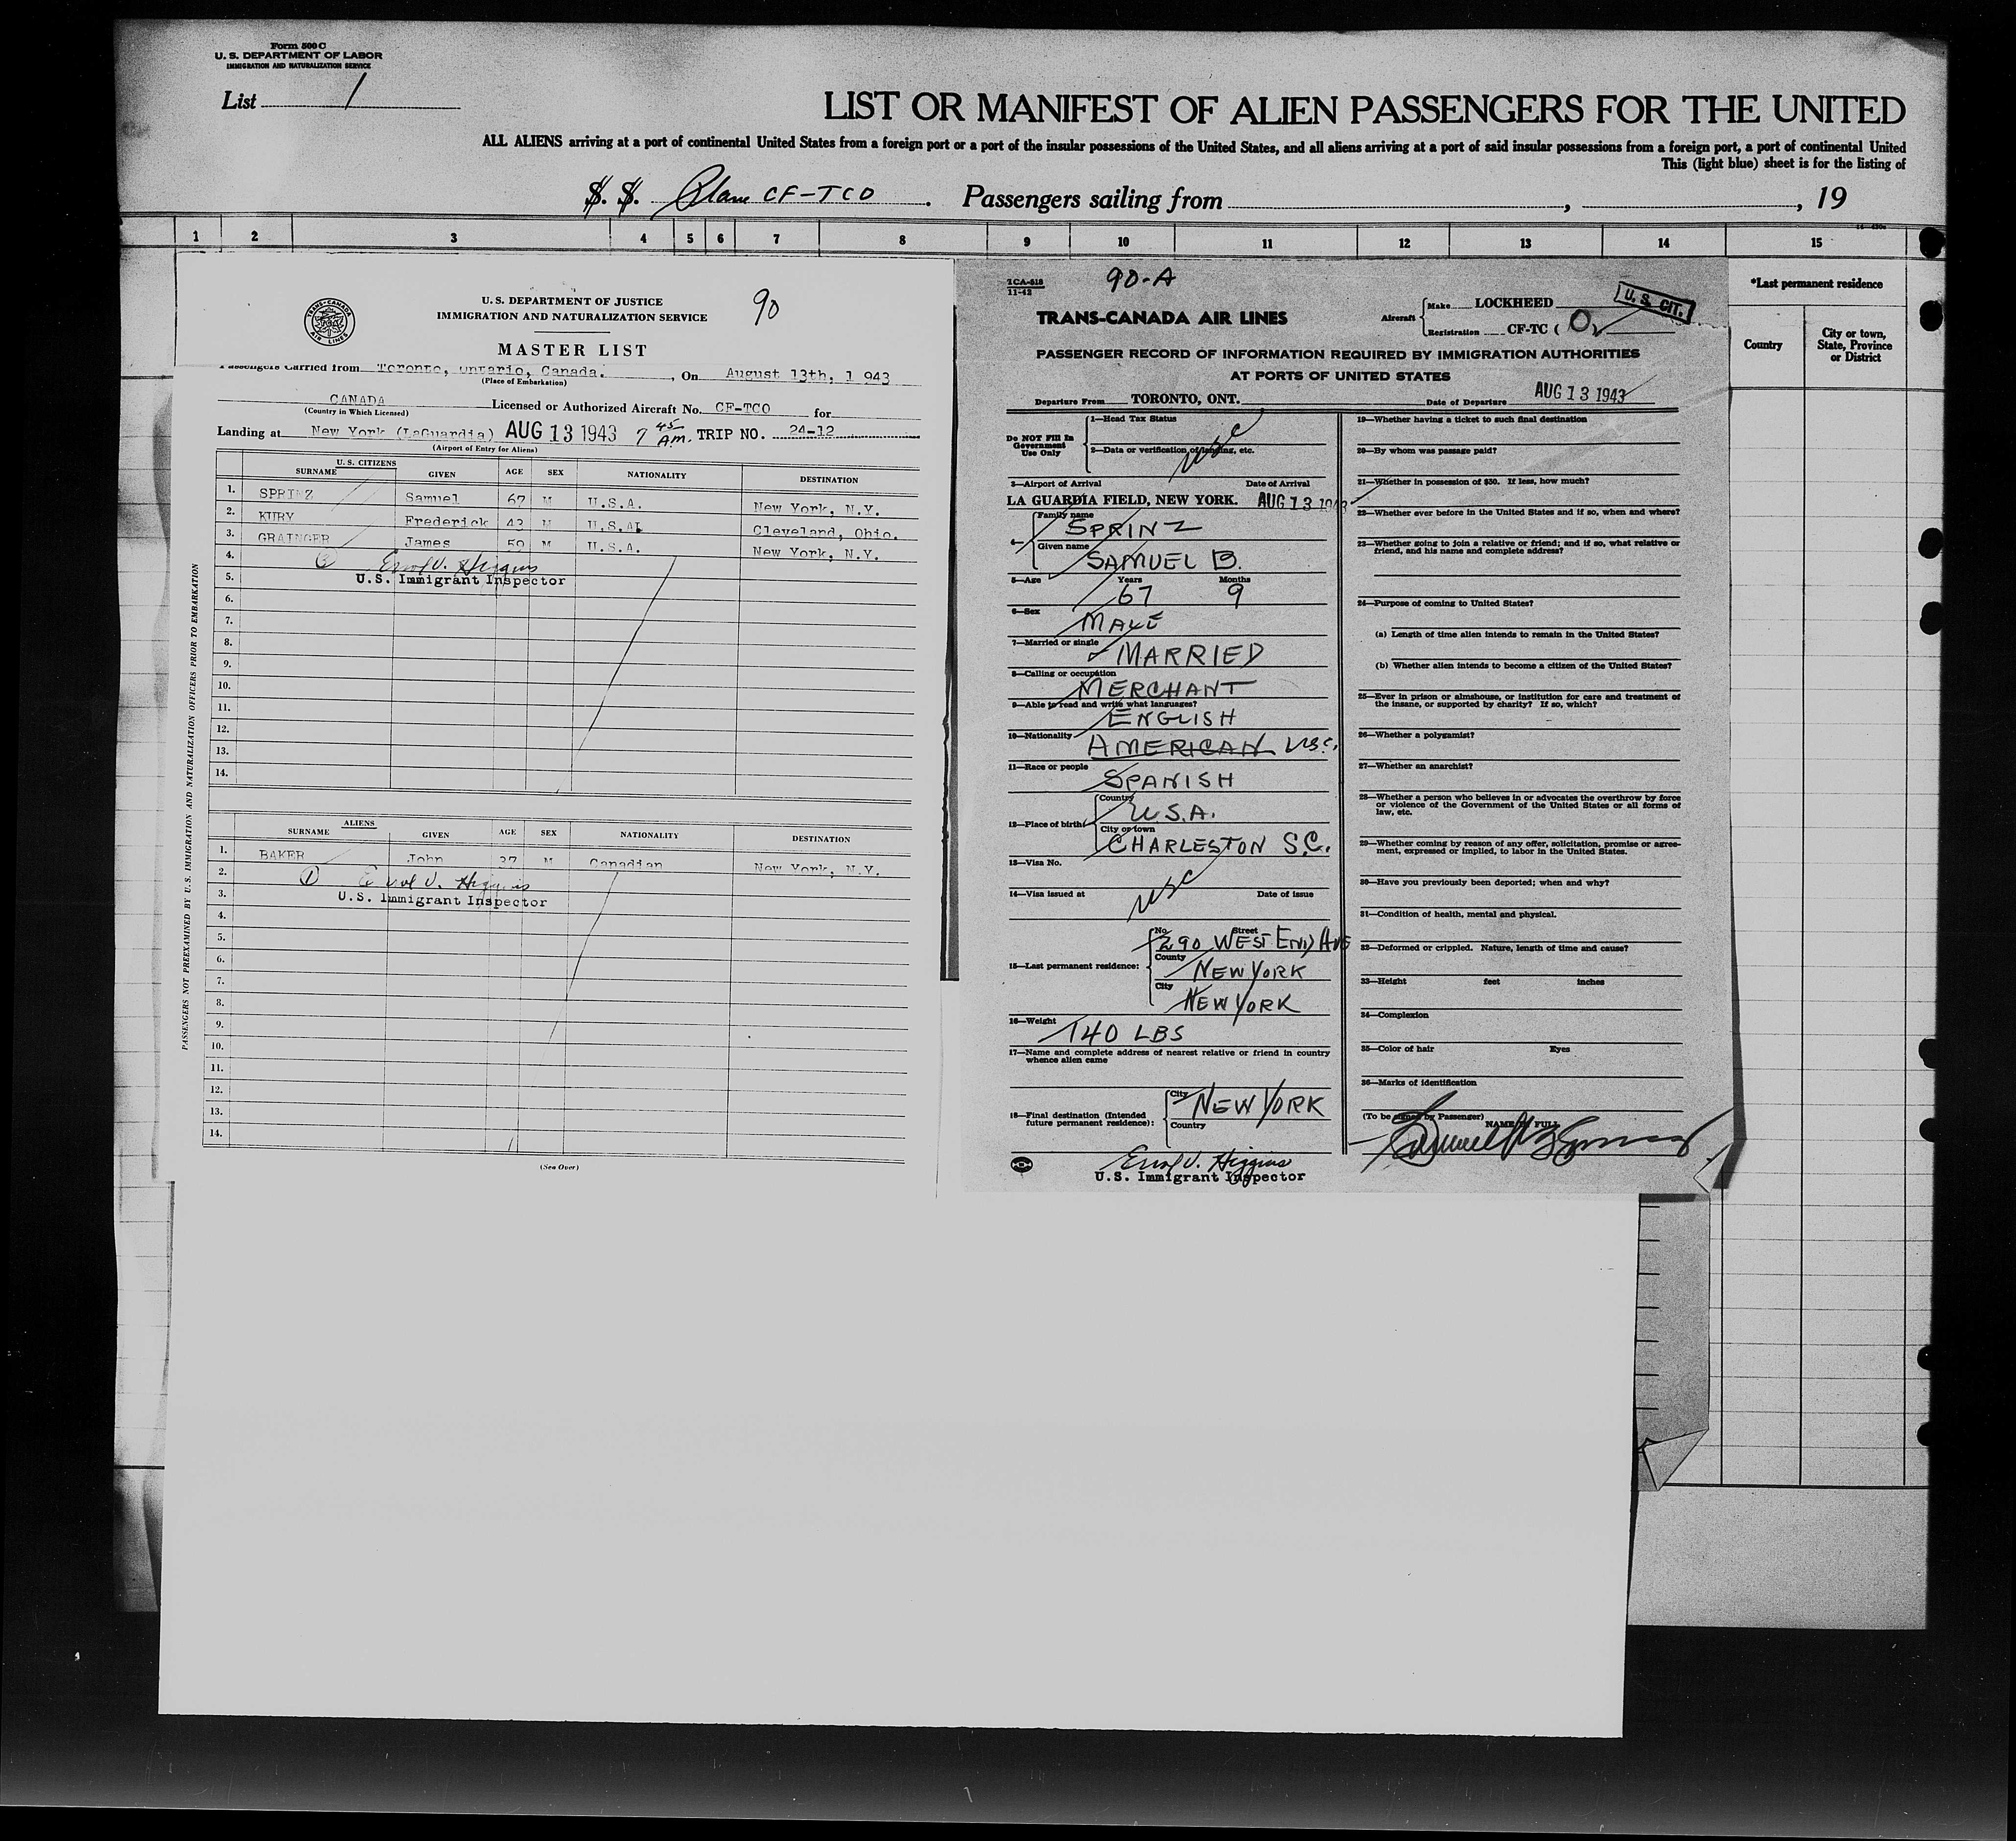 Form 500 C
U. S. DEPARTMENT OF LABOR
IMMIGRATION AND NATURALIZATION SERVICE
List 1
LIST OR MANIFEST OF ALIEN PASSENGERS FOR THE UNITED
ALL ALIENS arriving at a port of continental United States from a foreign port or a port of the insular possessions of the United States, and all aliens arriving at a port of said insular possessions from a foreign port, a port of continental United
This (light blue) sheet is for the listing of
S. S. Plane CF-TCO. Passengers sailing from , , 19
1 2 3 4 5 6 7 8 9 10 11 12 13 14 15
*Last permanent residence
Country
City or town, State, Province or District
TRANS-CANADA AIR LINES
U. S. DEPARTMENT OF JUSTICE
IMMIGRATION AND NATURALIZATION SERVICE
90
MASTER LIST
Passengers Carried from Toronto, Ontario, Canada. , On August 13th, 1 943
(Place of Embarkation)
CANADA Licensed or Authorized Aircraft No. CF-TCO for
(Country in Which Licensed)
Landing at New York (LaGuardia) AUG 13 1943 7 45 AM. TRIP NO. 24-12
(Airport of Entry for Aliens)
U. S. CITIZENS
SURNAME GIVEN AGE SEX NATIONALITY DESTINATION
1. SPRINZ Samuel 67 M U.S.A. New York, N.Y.
2. KURY Frederick 43 M U.S.A. Cleveland, Ohio.
3. GRAINGER James 59 M U.S.A. New York, N.Y.
4. Errol V. Higgins
5. U.S. Immigrant Inspector
6.
7.
8.
9.
10.
11.
12.
13.
14.
ALIENS
SURNAME GIVEN AGE SEX NATIONALITY DESTINATION
1. BAKER John 37 M Canadian New York, N.Y.
2. 1 Errol V. Higgins
3. U.S. Immigrant Inspector
4.
5.
6.
7.
8.
9.
10.
11.
12.
13.
14.
(See Over)
PASSENGERS NOT PREEXAMINED BY U. S. IMMIGRATION AND NATURALIZATION OFFICERS PRIOR TO EMBARKATION
TCA-618
11-42
90-A
TRANS-CANADA AIR LINES
Aircraft Make LOCKHEED
Registration CF-TC ( O )
U. S. CIT.
PASSENGER RECORD OF INFORMATION REQUIRED BY IMMIGRATION AUTHORITIES
AT PORTS OF UNITED STATES
Departure From TORONTO, ONT. Date of Departure AUG 13 1943
Do NOT Fill In Government Use Only
1—Head Tax Status
USC
2—Data or verification of landing, etc.
3—Airport of Arrival Date of Arrival
LA GUARDIA FIELD, NEW YORK. AUG 13 1943
4— Family name SPRINZ
Given name SAMUEL B.
5—Age Years 67 Months 9
6—Sex MALE
7—Married or single MARRIED
8—Calling or occupation MERCHANT
9—Able to read and write what languages? ENGLISH
10—Nationality AMERICAN USC.
11—Race or people SPANISH
12—Place of birth Country U.S.A.
City or town CHARLESTON S.C.
13—Visa No.
USC
14—Visa issued at Date of issue
15—Last permanent residence: No. Street 290 WEST END AVE
County NEW YORK
City NEW YORK
16—Weight 140 LBS
17—Name and complete address of nearest relative or friend in country whence alien came
18—Final destination (Intended future permanent residence): City NEW YORK
Country
Errol V. Higgins
U.S. Immigrant Inspector
19—Whether having a ticket to such final destination
20—By whom was passage paid?
21—Whether in possession of $50. If less, how much?
22—Whether ever before in the United States and if so, when and where?
23—Whether going to join a relative or friend; and if so, what relative or friend, and his name and complete address?
24—Purpose of coming to United States?
(a) Length of time alien intends to remain in the United States?
(b) Whether alien intends to become a citizen of the United States?
25—Ever in prison or almshouse, or institution for care and treatment of the insane, or supported by charity? If so, which?
26—Whether a polygamist?
27—Whether an anarchist?
28—Whether a person who believes in or advocates the overthrow by force or violence of the Government of the United States or all forms of law, etc.
29—Whether coming by reason of any offer, solicitation, promise or agreement, expressed or implied, to labor in the United States.
30—Have you previously been deported; when and why?
31—Condition of health, mental and physical.
32—Deformed or crippled. Nature, length of time and cause?
33—Height feet inches
34—Complexion
35—Color of hair Eyes
36—Marks of identification
(To be signed by Passenger)
NAME IN FULL
Samuel B Sprinz